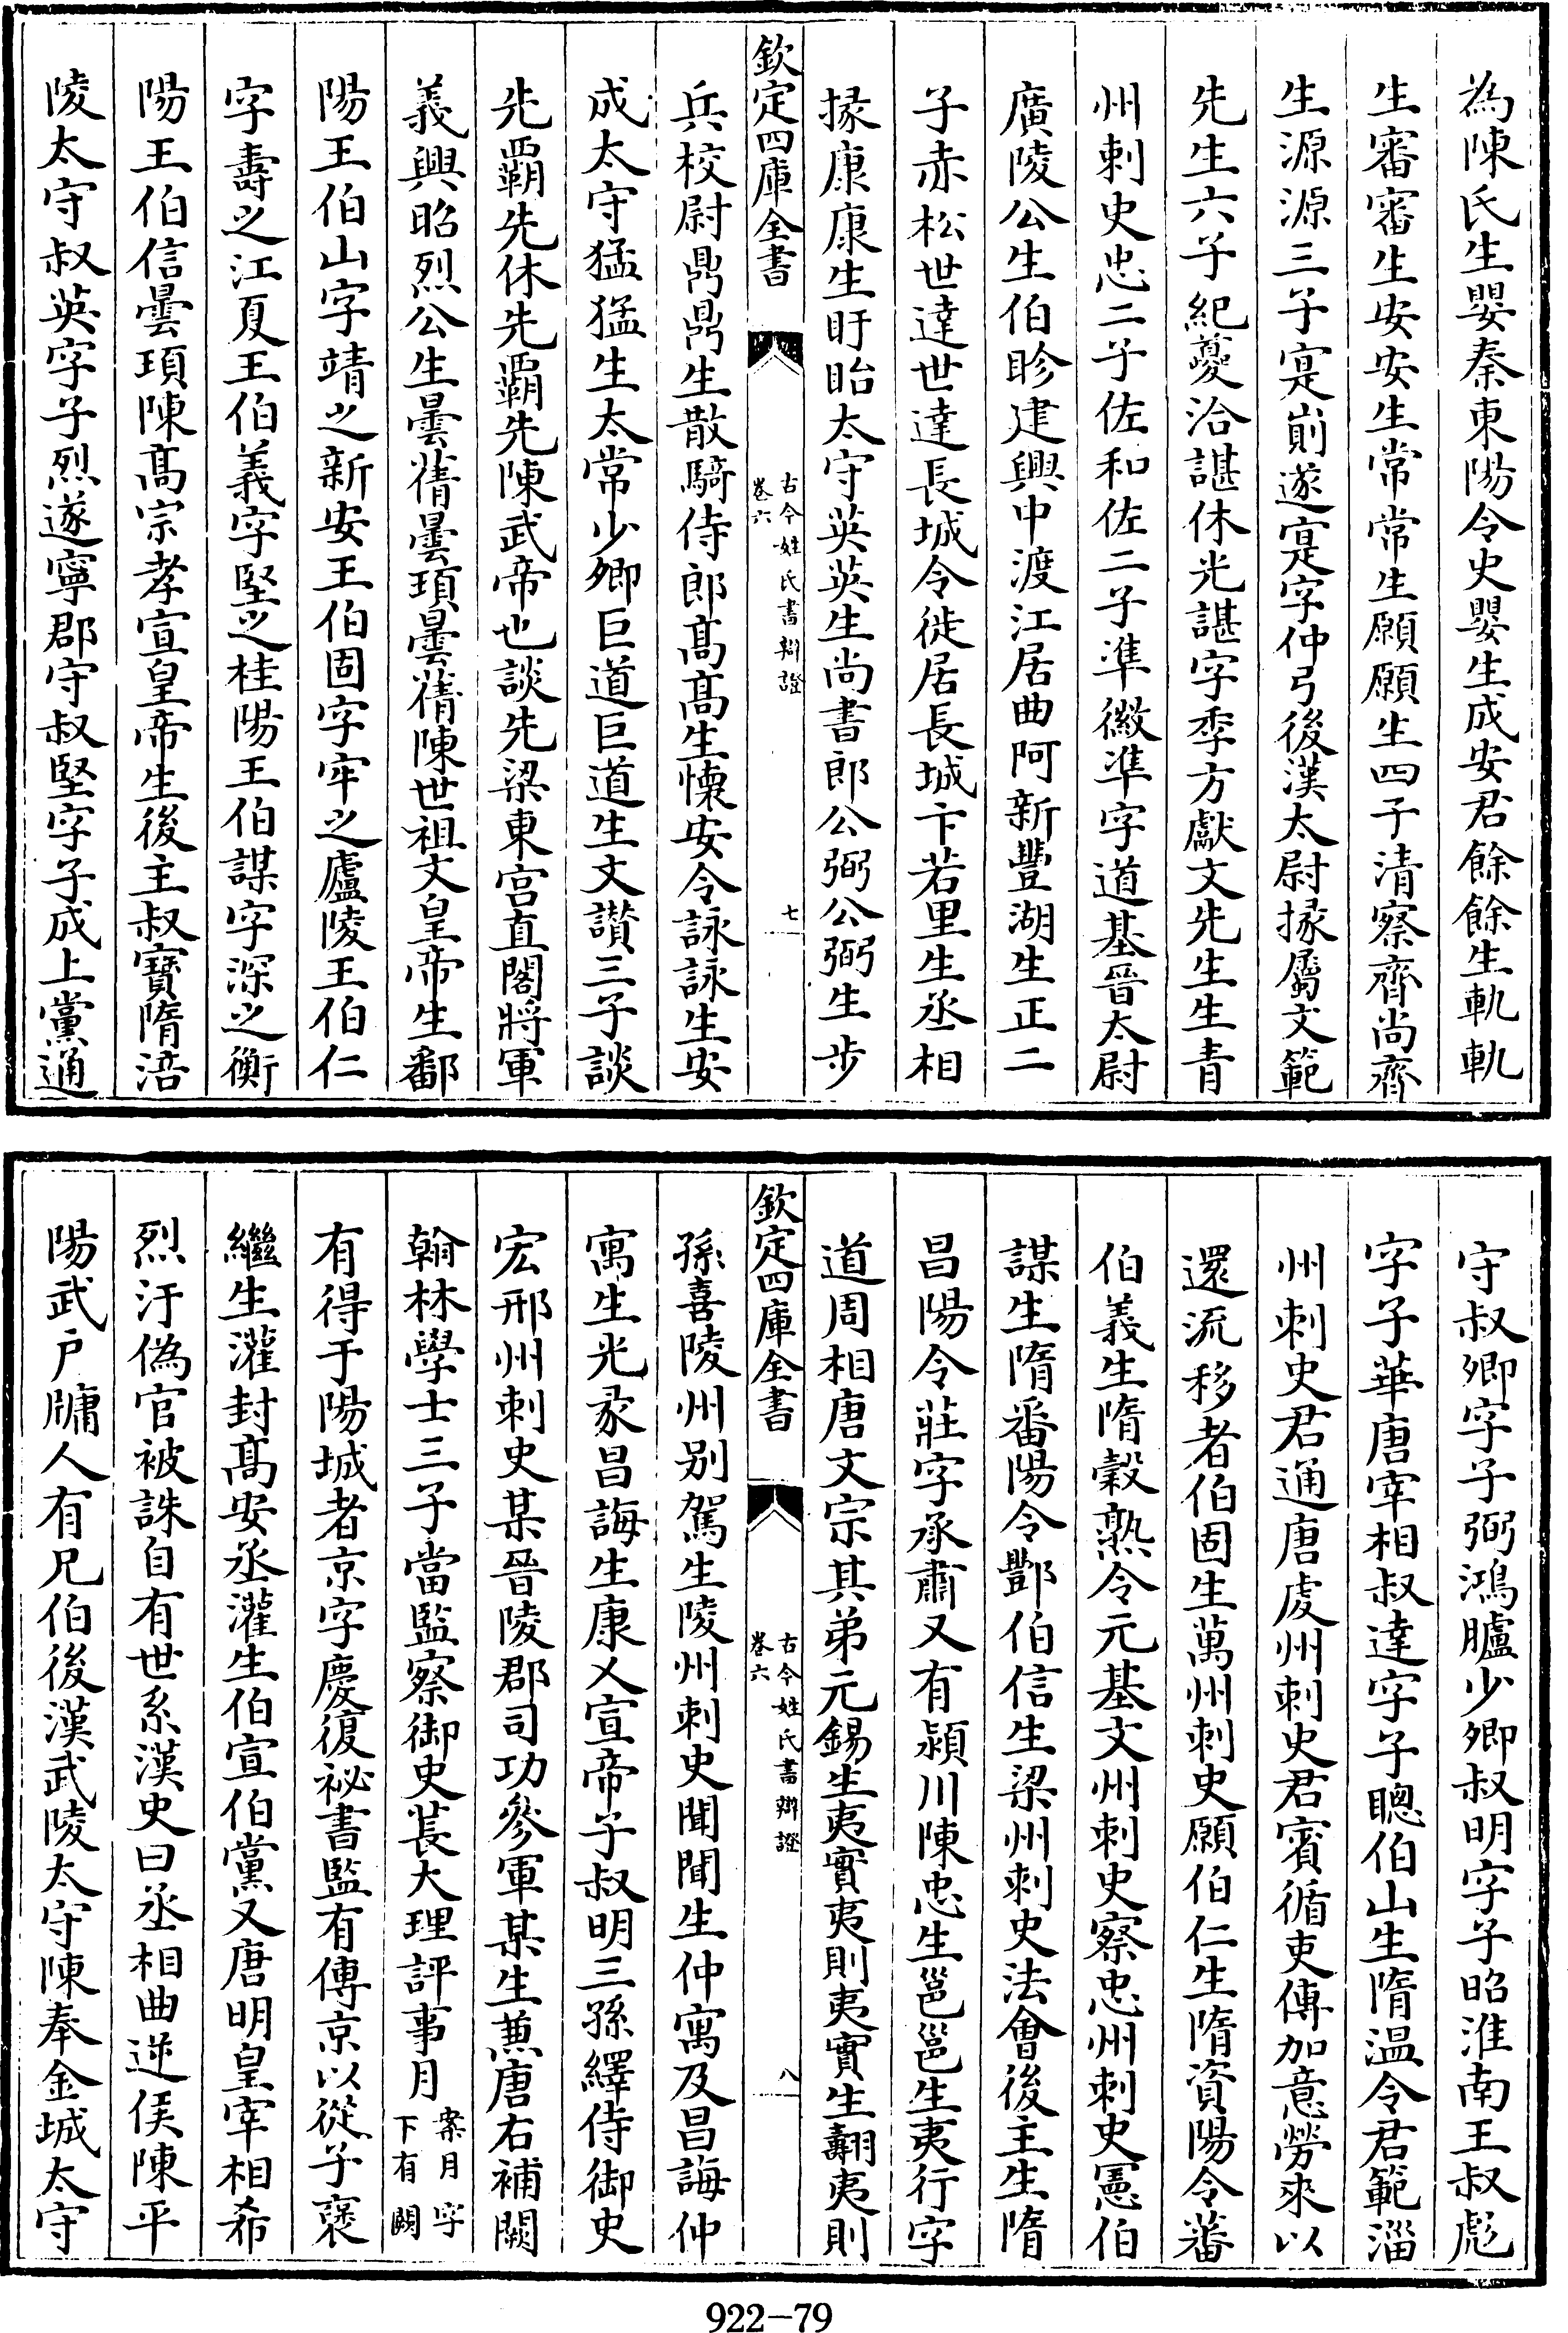 為陳氏生嬰秦東陽令史嬰生成安君餘餘生軌軌
生審審生安安生常常生願願生四子清察齊尚齊
生源源三子寔崱邃寔字仲弓後漢太尉掾屬文範
先生六子紀夔洽諶休光諶字季方獻文先生生青
州刺史忠二子佐和佐二子準徽準字道基晉太尉
廣陵公生伯眕建興中渡江居曲阿新豐湖生正二
子赤松世達世達長城令徙居長城卞若里生丞相
掾康康生盱眙太守英英生尚書郎公弼公弼生步
欽定四庫全書
古今姓氏書辯證
卷六
七
兵校尉鼎鼎生散騎侍郎高高生懷安令詠詠生安
成太守猛猛生太常少卿巨道巨道生文讃三子談
先霸先休先霸先陳武帝也談先梁東宮直閣將軍
義興昭烈公生曇蒨曇頊曇蒨陳世祖文皇帝生鄱
陽王伯山字靖之新安王伯固字牢之廬陵王伯仁
字壽之江夏王伯義字堅之桂陽王伯謀字深之衡
陽王伯信曇頊陳高宗孝宣皇帝生後主叔寶隋涪
陵太守叔英字子烈遂寧郡守叔堅字子成上黨通
守叔卿字子弼鴻臚少卿叔明字子昭淮南王叔彪
字子華唐宰相叔達字子聰伯山生隋温令君範淄
州刺史君通唐虔州刺史君賓循吏傳加意勞來以
還流移者伯固生萬州刺史願伯仁生隋資陽令蕃
伯義生隋穀熟令元基文州刺史察忠州刺史憲伯
謀生隋番陽令酆伯信生梁州刺史法會後主生隋
昌陽令莊字承肅又有潁川陳忠生邕邕生夷行字
道周相唐文宗其弟元錫生夷實夷則夷實生翿夷則
欽定四庫全書
古今姓氏書辯證
卷六
八
孫喜陵州别駕生陵州刺史聞聞生仲寓及昌誨仲
寓生光彖昌誨生康乂宣帝子叔明三孫繹侍御史
宏邢州刺史某晉陵郡司功參軍某生蕳唐右補闕
翰林學士三子當監察御史萇大理評事月
案月字
下有闕
有得于陽城者京字慶復祕書監有傳京以從子褒
繼生灌封高安丞灌生伯宣伯黨又唐明皇宰相希
烈汙偽官被誅自有世系漢史曰丞相曲逆侯陳平
陽武户牖人有兄伯後漢武陵太守陳奉金城太守
922-79